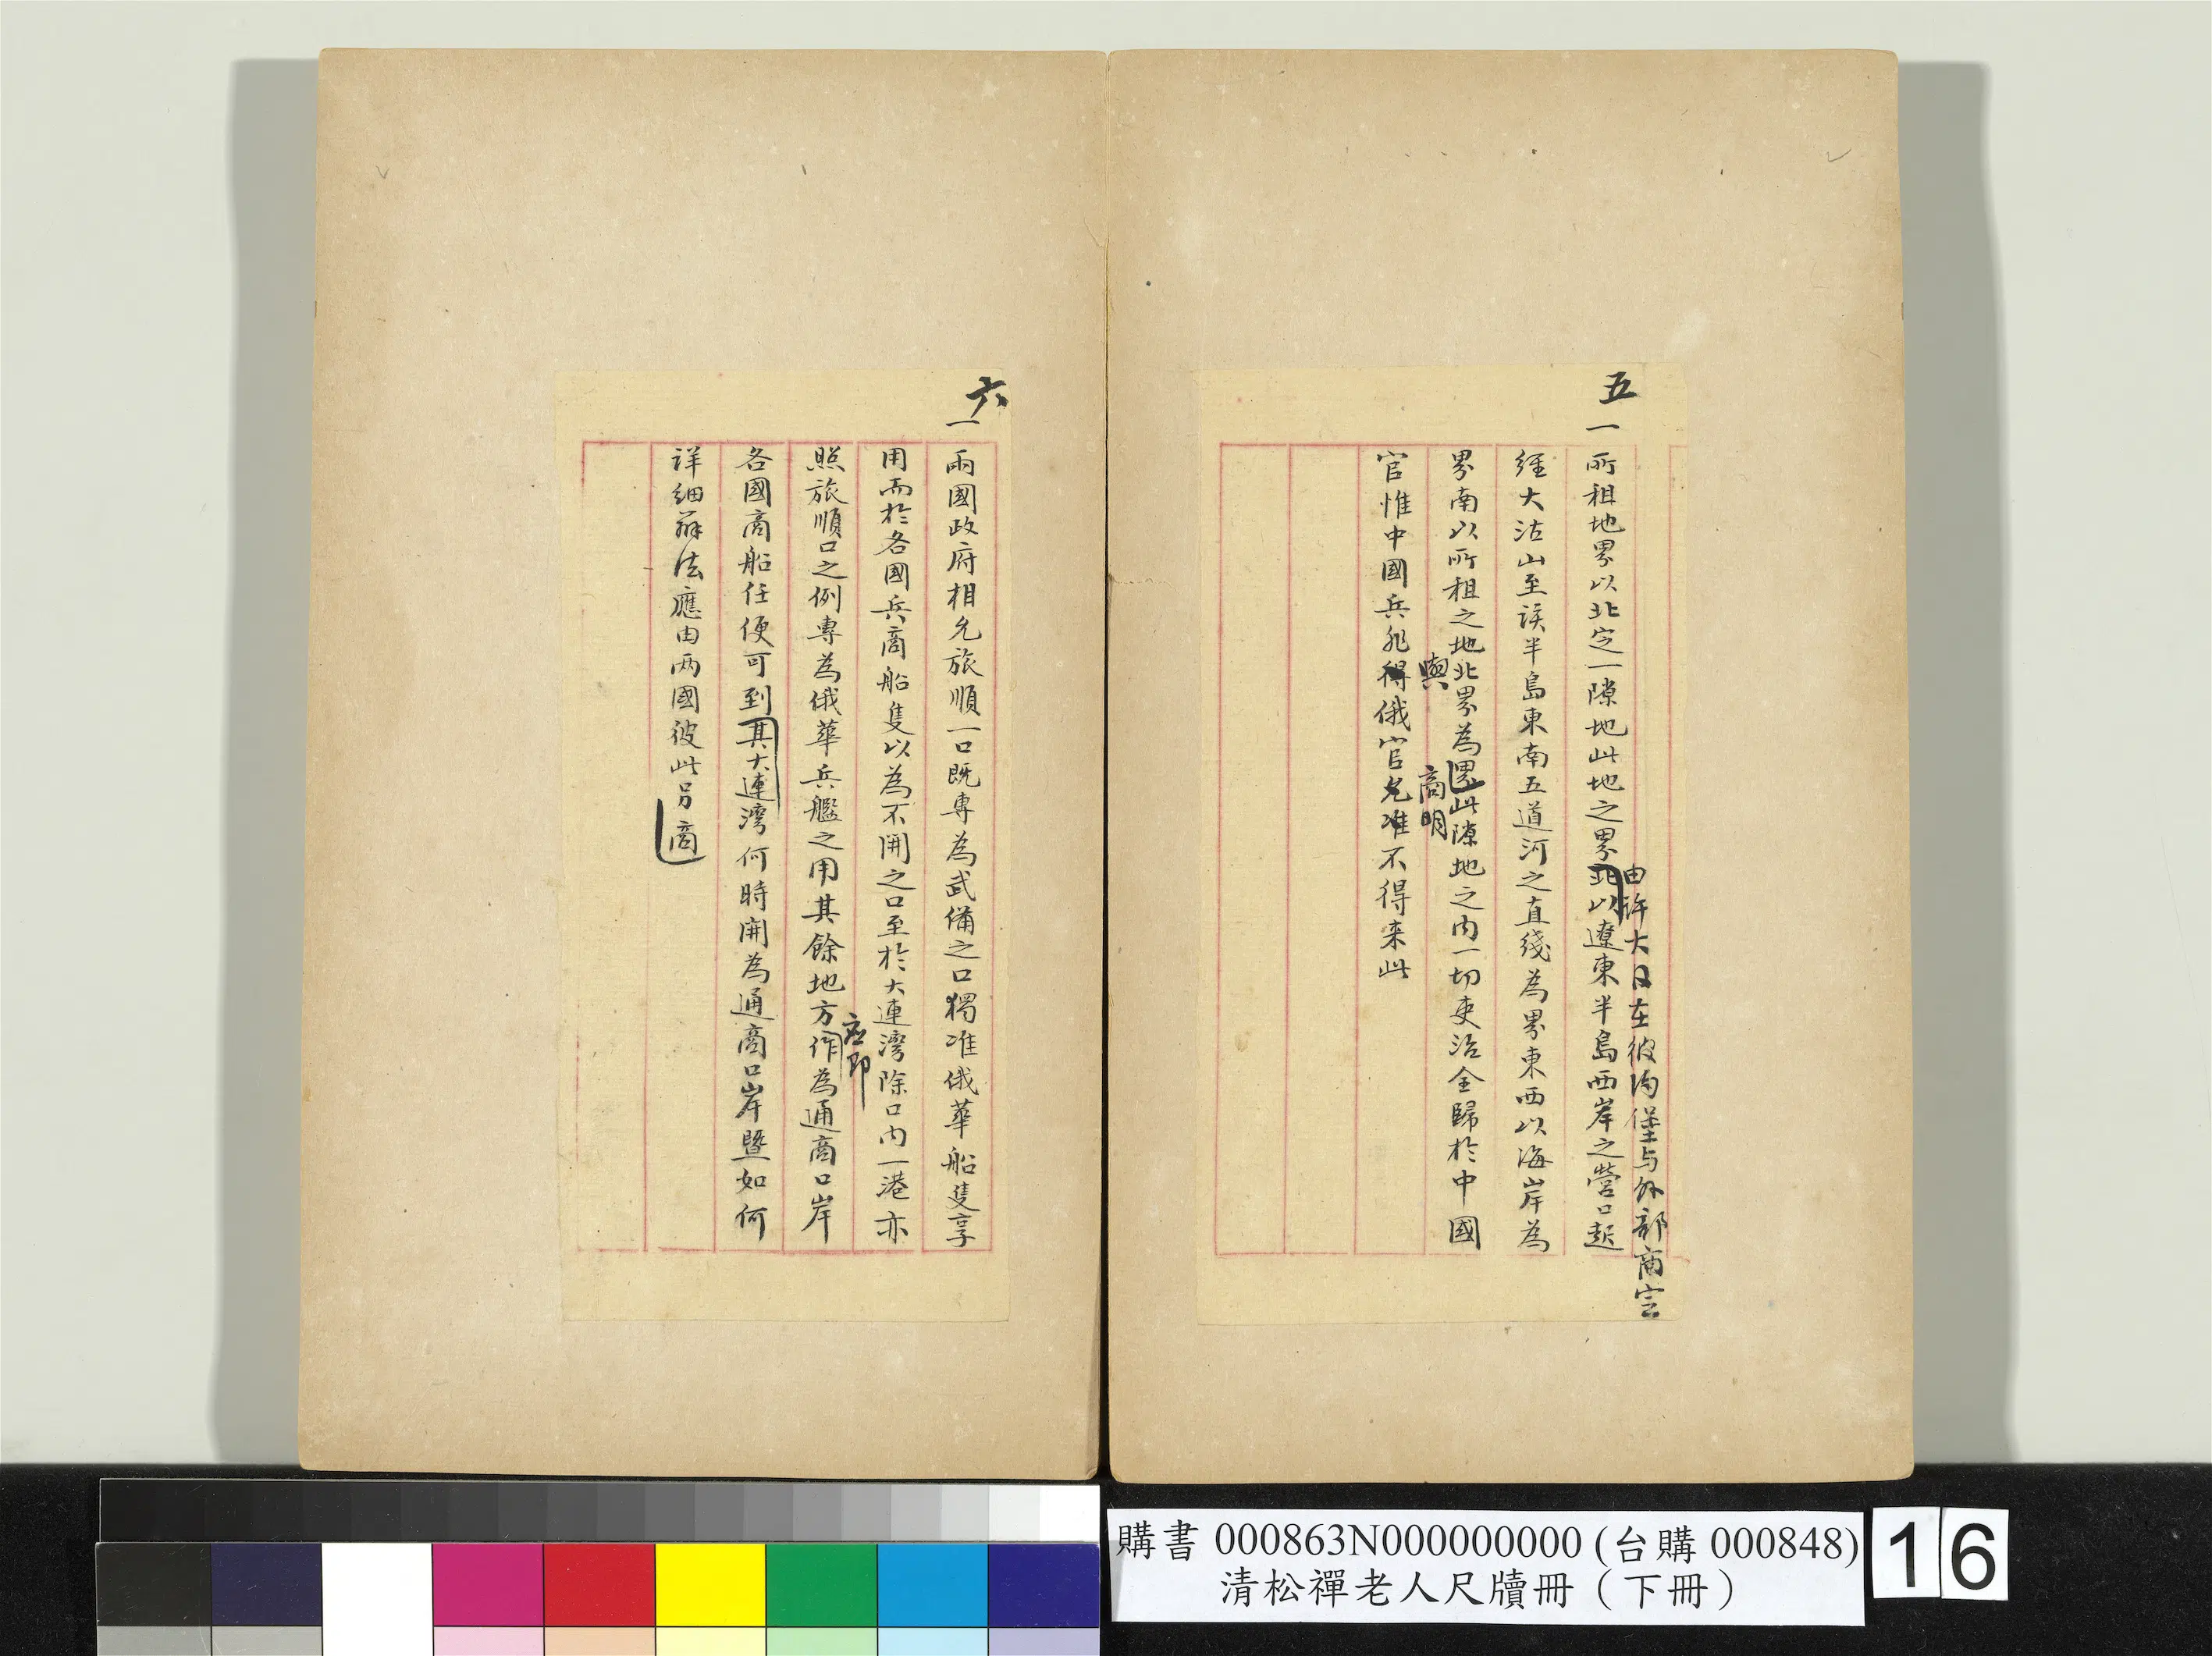 五
一
由許大臣在彼得堡与外部商定
所租地界以北定一隙地此地之界北以遼東半島西岸之營口起
經大沽山至該半島東南五道河之直綫為界東西以海岸為
界南以所租之地北界為界此隙地之内一切吏治全歸於中國
與
商明
官惟中國兵非得俄官允准不得来此
六
一
兩國政府相允旅順一口既專為武備之口獨准俄華船隻享
用而於各國兵商船隻以為不開之口至於大連灣除口内一港亦
照旅順口之例專為俄華兵艦之用其餘地方作為通商口岸
应即
各國商船任便可到其大連灣何時開為通商口岸暨如何
詳細辦法應由两國彼此另商
購書 000863N000000000 (台購 000848)
清松禪老人尺牘冊（下冊）
16